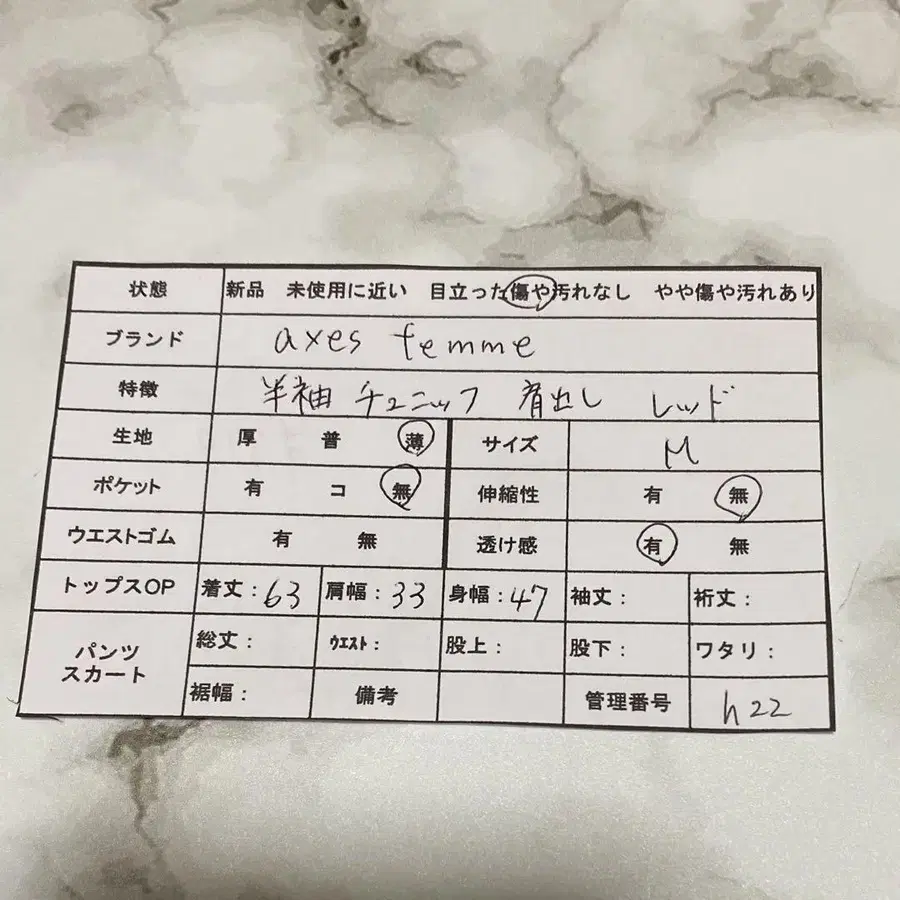 状態 新品 未使用に近い 目立った傷や汚れなし やや傷や汚れあり
ブランド axes femme
特徴 半袖 チュニック 肩出し レッド
生地 厚 普 薄 サイズ M
ポケット 有 コ 無 伸縮性 有 無
ウエストゴム 有 無 透け感 有 無
トップスOP 着丈：63 肩幅：33 身幅：47 袖丈： 裄丈：
パンツ スカート 総丈： ウエスト： 股上： 股下： ワタリ：
裾幅： 備考 管理番号 h22